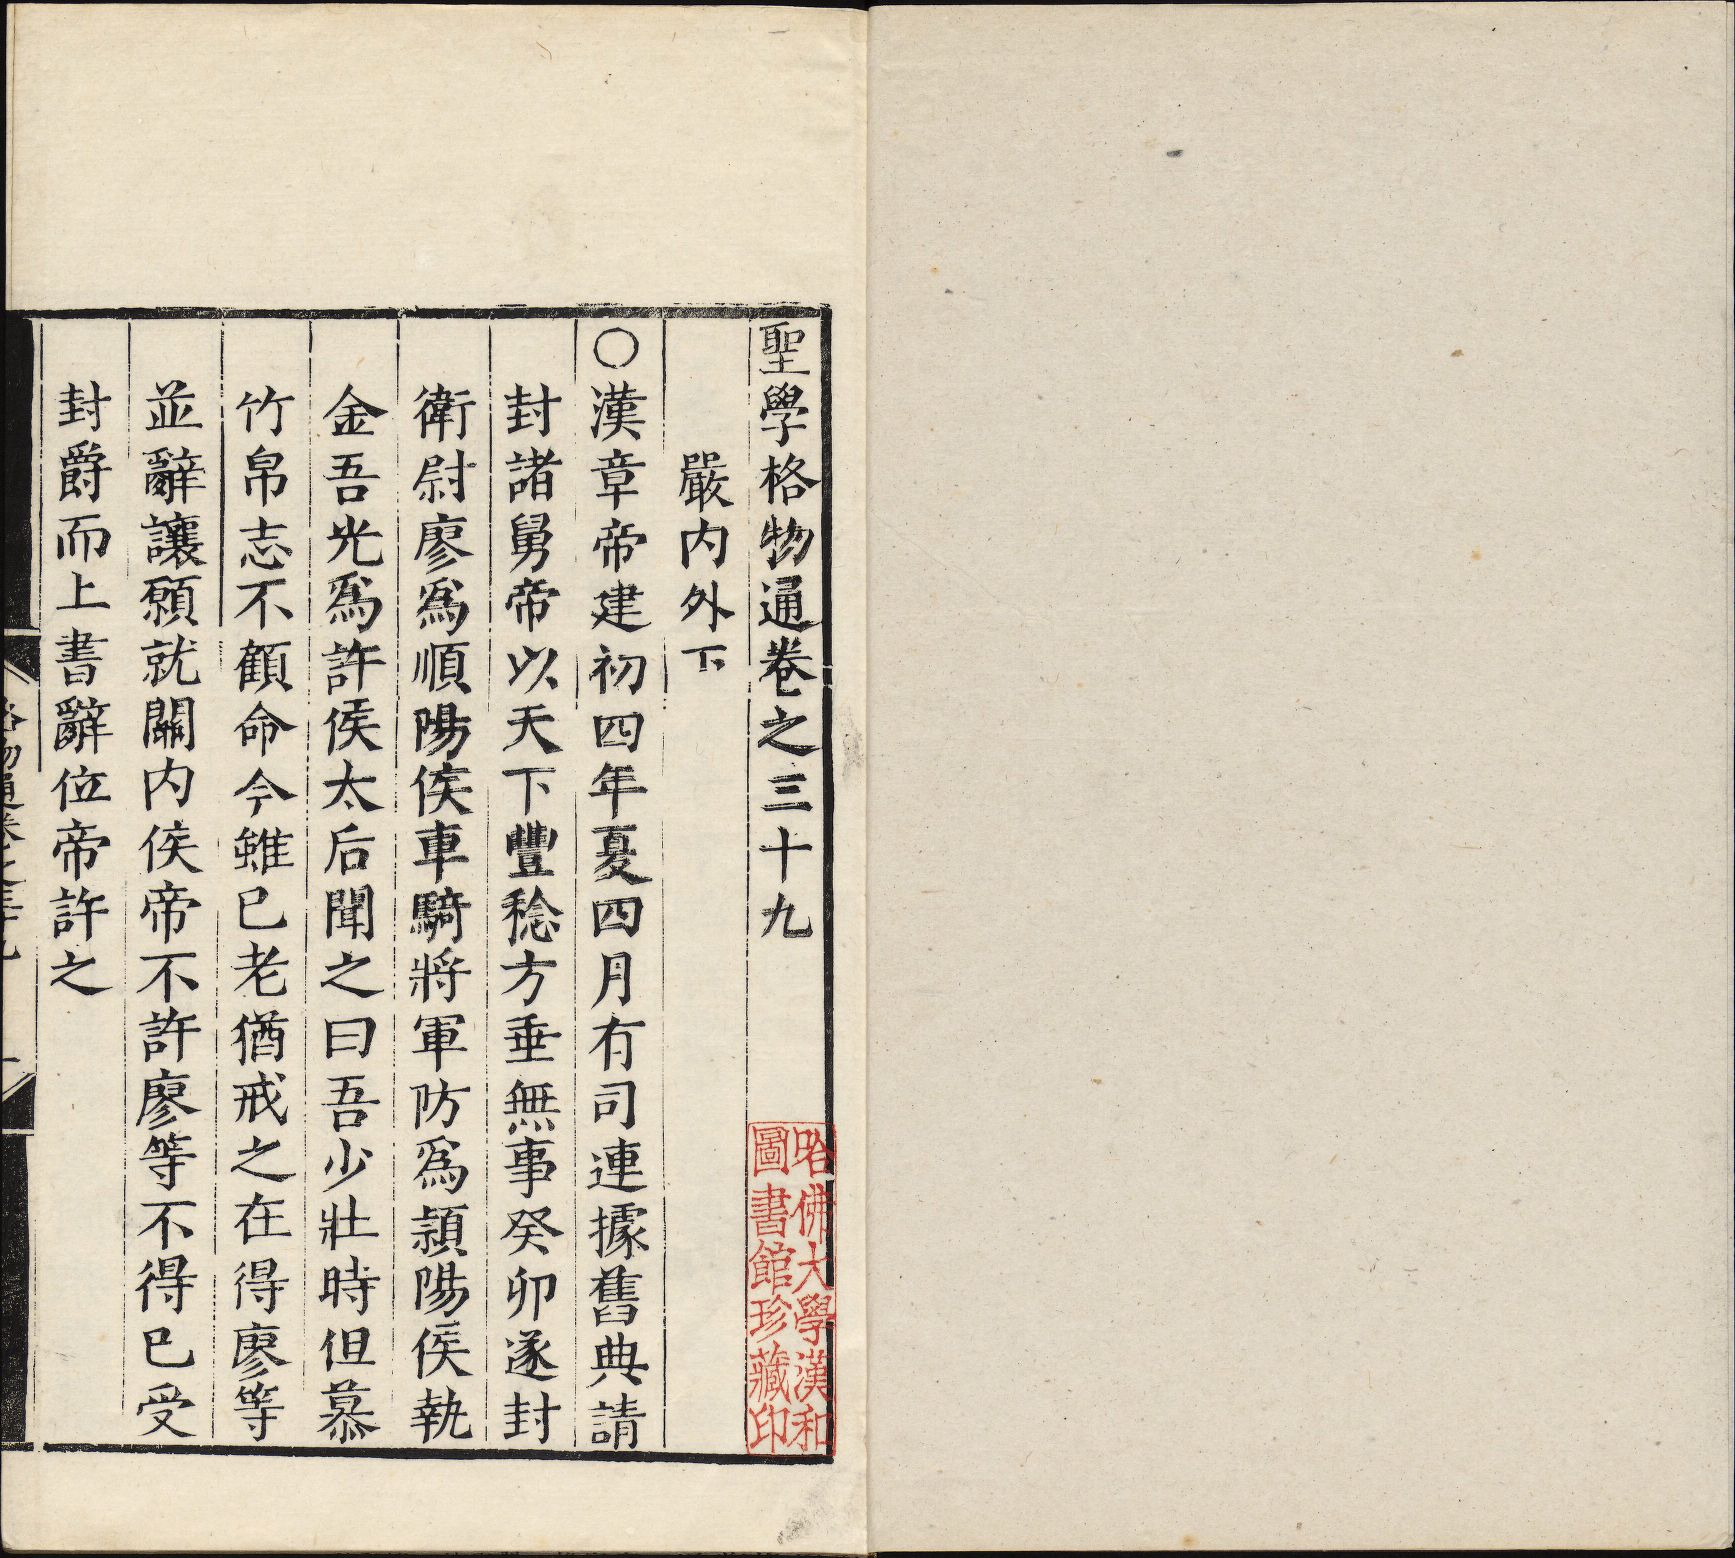 聖學格物通卷之三十九
嚴内外下
○漢章帝建初四年夏四月有司連據舊典請
封諸舅帝以天下豐稔方垂無事癸卯遂封
衛尉廖爲順陽侯車騎將軍防爲潁陽侯執
金吾光爲許侯太后聞之曰吾少壯時但慕
竹帛志不顧命今雖已老猶戒之在得廖等
並辭讓願就關内侯帝不許廖等不得已受
封爵而上書辭位帝許之
格物通卷之三十九
一
哈佛大學漢和
圖書館珍藏印